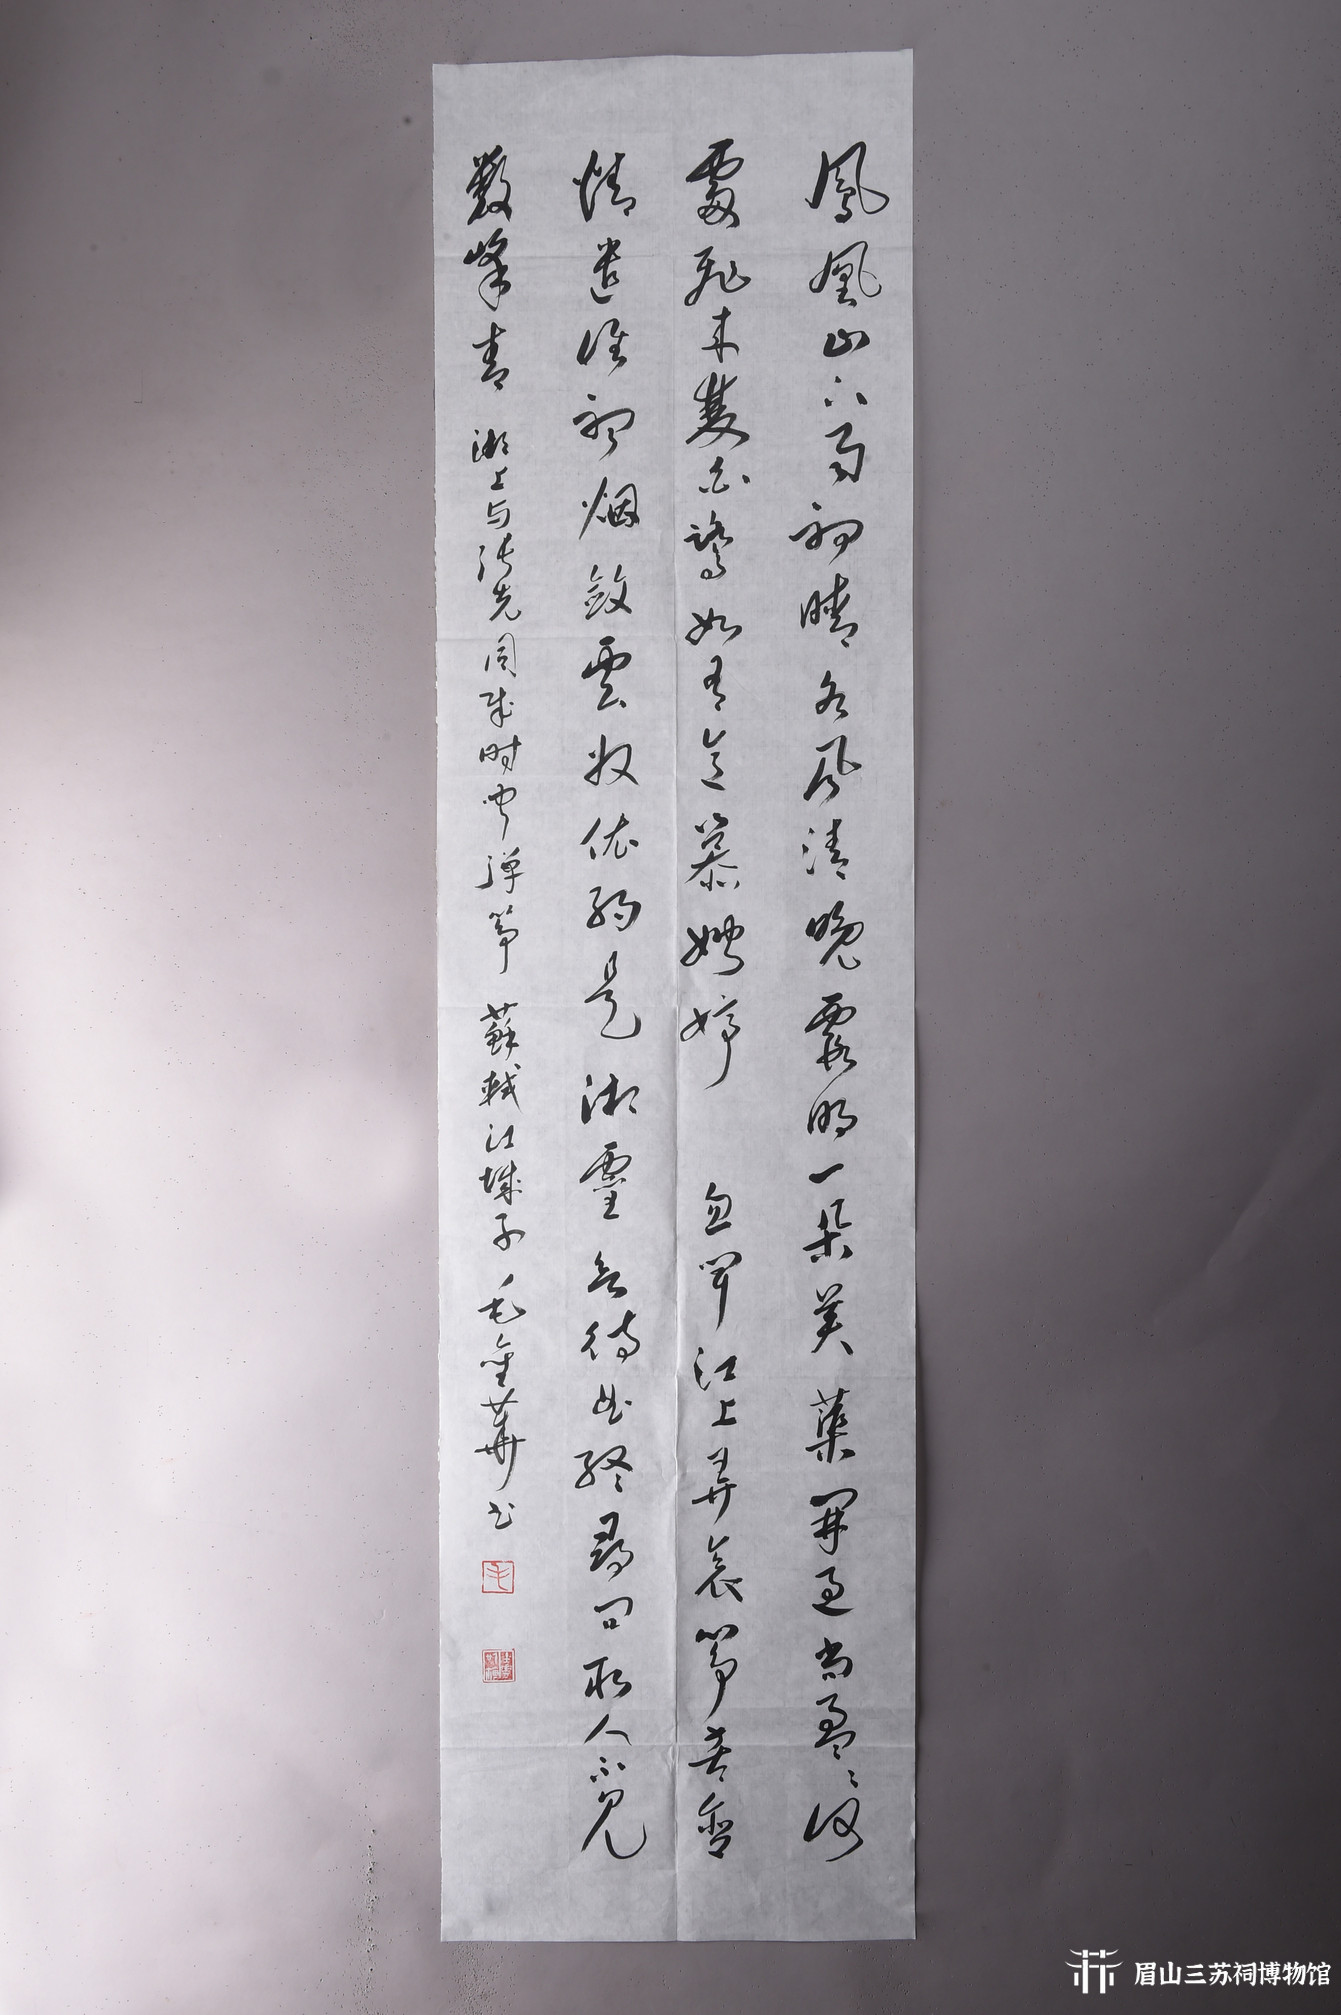 鳳凰山下雨初晴水风清晚霞明一朵芙蕖開過尚盈〻何
處飛来雙白鷺如有意慕娉婷 忽聞江上弄哀箏苦含
情遣誰聽烟斂雲收依約是湘靈欲待曲終尋問取人不見
數峰青 湖上与張先同賦时聞彈箏 蘇軾江城子 毛金華书
毛
眉山三苏祠博物馆